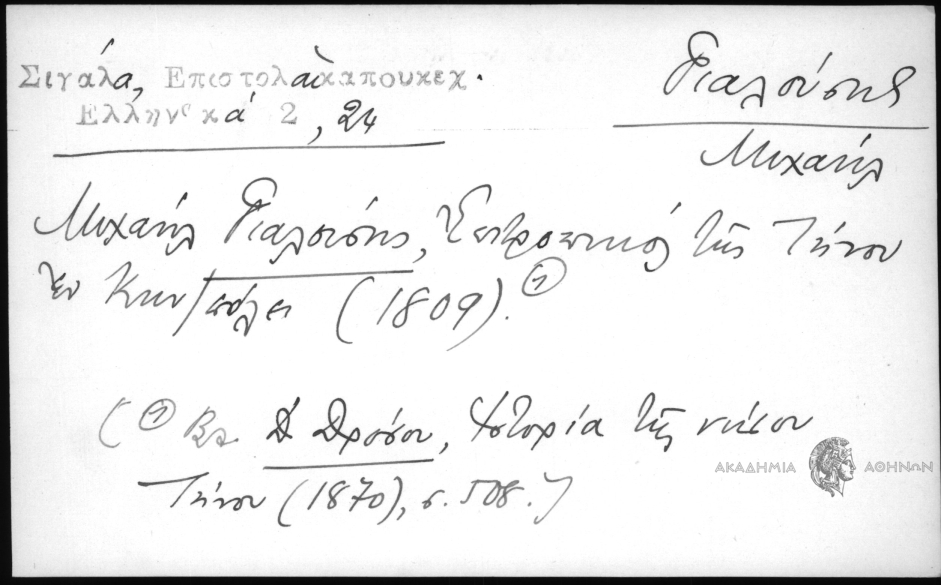 Σιγάλα, Επιστολαὶ καπουκεχ.
Ελληνικά 2, 24
Γιαλούσης
Μιχαήλ
Μιχαήλ Γιαλούσης, Ἐπιτροπικός τῆς Τήνου
ἐν Κων/πόλει (1809).①
(① Βλ. Δ Δρόσου, Ἱστορία τῆς νήσου
Τήνου (1870), σ. 508.)
ΑΚΑΔΗΜΙΑ ΑΘΗΝΩΝ